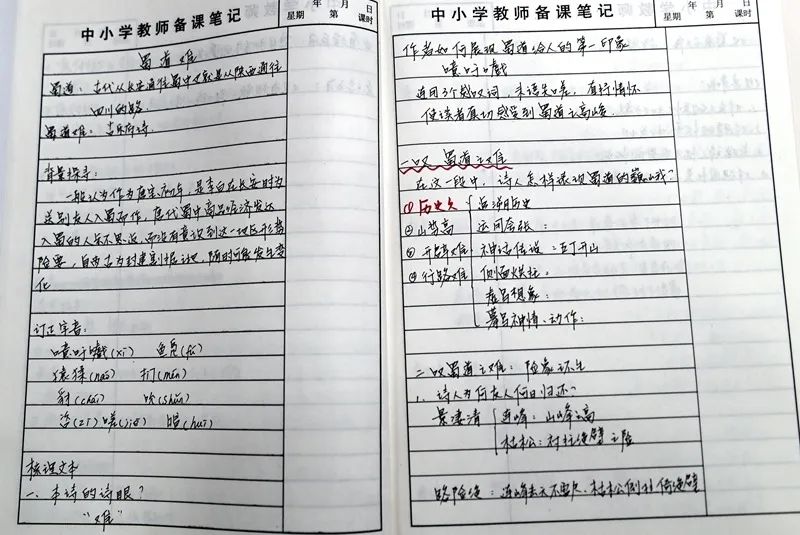 中小学教师备课笔记
年 月 日
星期 第 课时
蜀道难
蜀道：古代从长安通往蜀中也就是从陕西通往
四川的路
蜀道难：古乐府诗
背景探寻：
一般认为作为唐玄宗初年，是李白在长安时为
送别友人入蜀而作，唐代蜀中商品经济发达
入蜀的人乐不思返，而没有意识到这一地区形势
险要，自古为封建割据之地，随时可能发生变
化
订正字音：
噫吁嚱(xī)
猿猱(náo) 扪(mén)
豺(chái) 吮(shǔn)
咨(zī)嗟(jiē)
梳理文本
一、本诗的诗眼？
“难”
中小学教师备课笔记
年 月 日
星期 第 课时
作者如何展现蜀道给人的第一印象
噫吁嚱
连用3个感叹词，直抒情怀
使读者真切感受到蜀道之高峻。
一叹 蜀道之难
在这一段中，诗人怎样表现蜀道的艰难？
①历史久 追溯历史
②山势高 运用夸张：
③开辟难 神话传说：五丁开山
④行路难 侧面烘托：
虚写想象：
摹写神情、动作：
二叹蜀道之难：险象环生
1、诗人为何友人何日归还？
景凄清 连峰：山峰之高
枯松：衬托绝壁之险
路险绝：连峰去天不盈尺，枯松倒挂倚绝壁